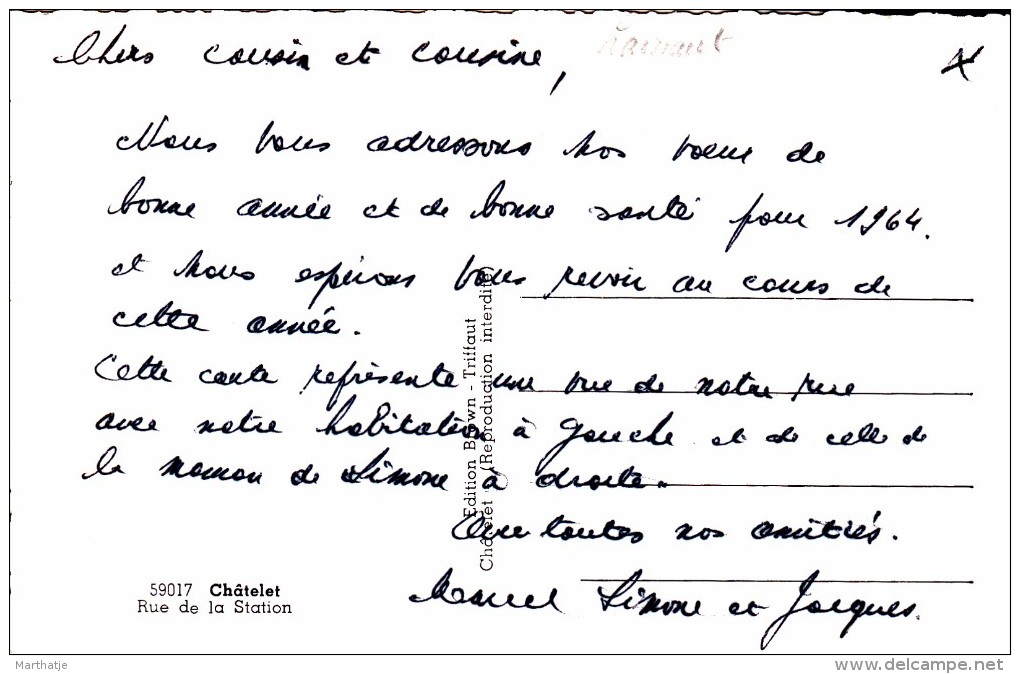 Chers cousin et cousine,
Nous vous adressons nos voeux de
bonne année et de bonne santé pour 1964.
et nous espérons vous revoir au cours de
cette année.
Cette carte représente une vue de notre rue
avec notre habitation à gauche et de celle de
la maman de Simone à droite.
Avec toutes nos amitiés.
Marcel Simone et Jacques.
Edition Brown - Triffaut
Châtelet (Reproduction interdite)
59017 Châtelet
Rue de la Station
Marthatje
www.delcampe.net